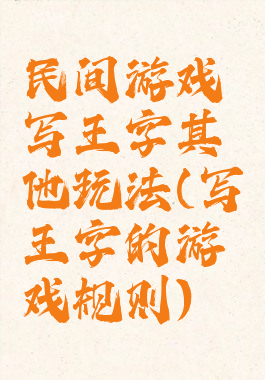 民间游戏
写王字其
他玩法(写
王字的游
戏规则)